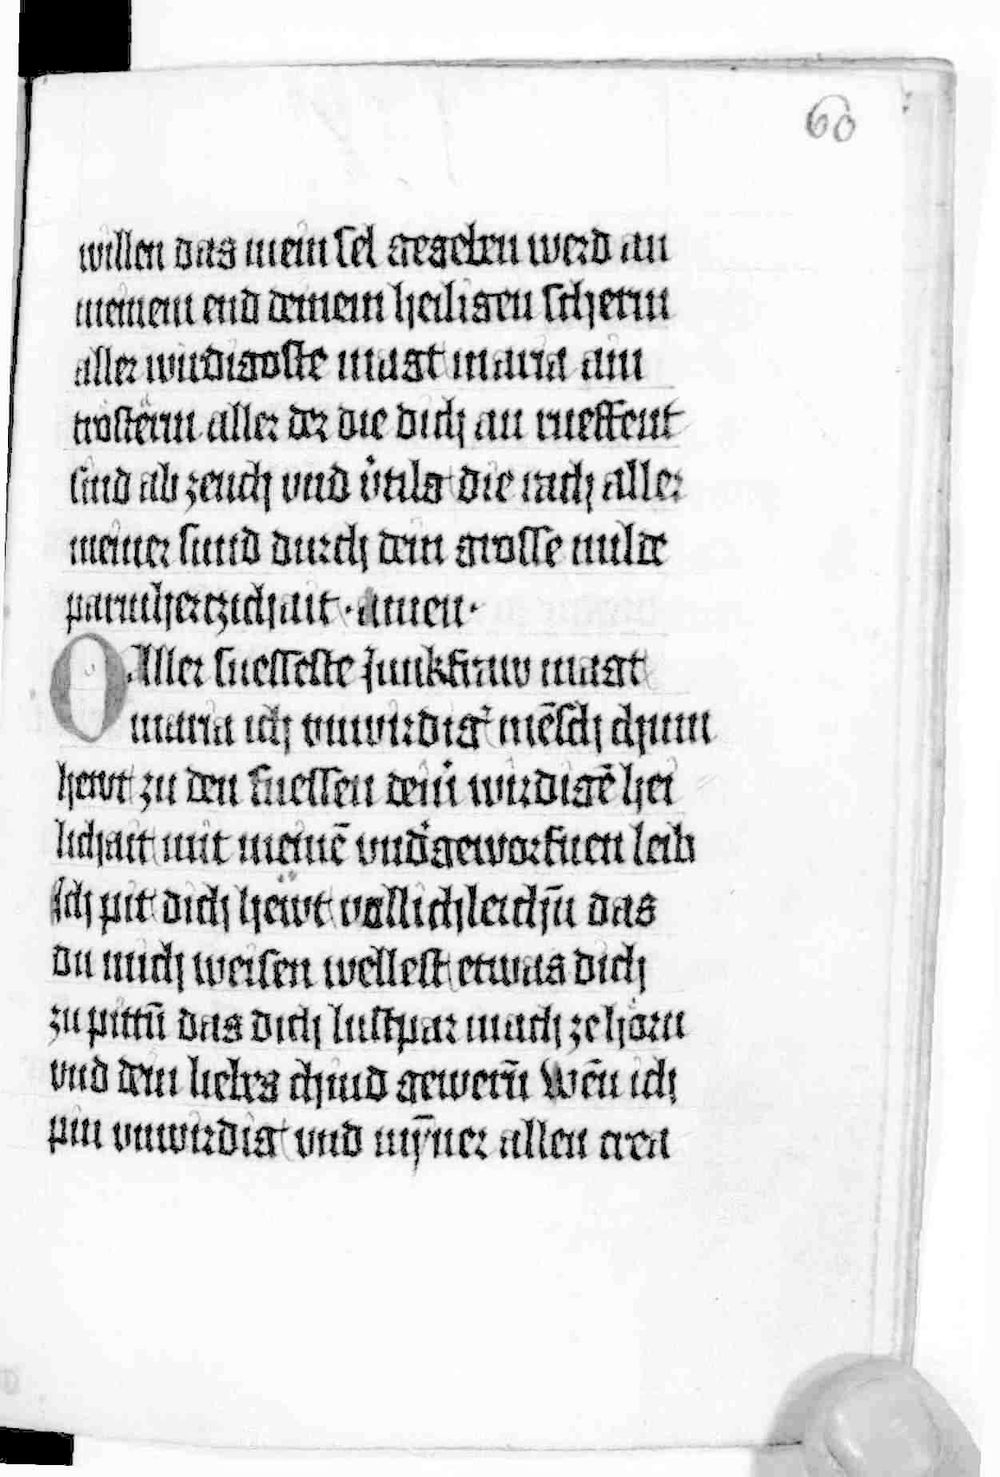 60
willen das mein sel gegeben werd an
meinem end deinem heiligen scherm
aller wirdigoste magt maria ain
trostërin aller der die dich an rueffent
sind ab zeuch vnd v̓tilg die rach aller
meiner sund durch dein grosse milde
parmherczichait · Amen ·
O Aller suesseste Junkfraw magt
maria ich vnwirdig̓ mēsch chum
hewt zu den fuessen dein̓ wirdigē hei
lichait mit meinē vnd̓geworfnen leib
Ich pit dich hëwt vollichleichn̄ das
du mich weisen wellest etwas dich
zu pittn̄ das dich lustpar mach ze hörn
vnd dein liebes chind gewern̄ Wēn ich
pin vnwirdig vnd mȳner allen crea